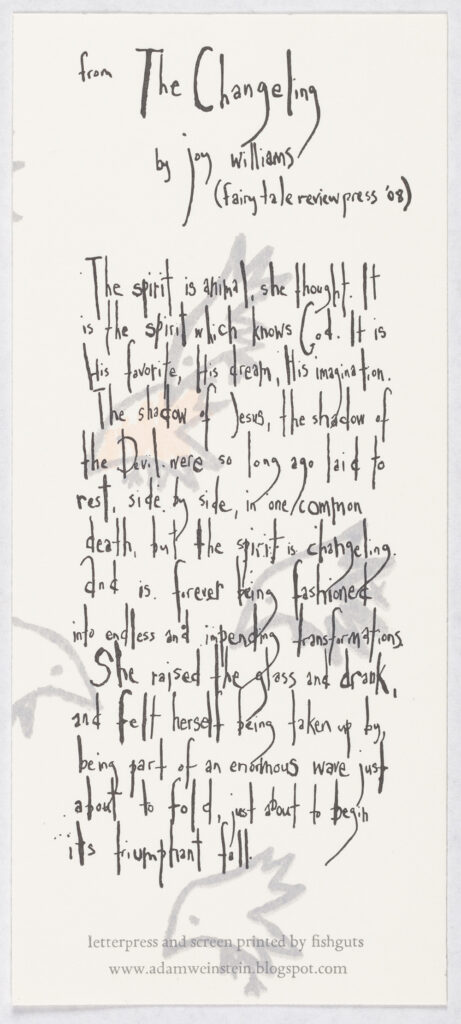 from The Changeling
by joy williams
(fairy tale review press '08)
The spirit is animal, she thought. It
is the spirit which knows God. It is
His favorite, His dream, His imagination.
The shadow of Jesus, the shadow of
the Devil were so long ago laid to
rest, side by side, in one common
death, but the spirit is changeling.
and is forever being fashioned
into endless and impending transformations.
She raised the glass and drank,
and felt herself being taken up by,
being part of an enormous wave just
about to fold, just about to begin
its triumphant fall.
letterpress and screen printed by fishguts
www.adamweinstein.blogspot.com